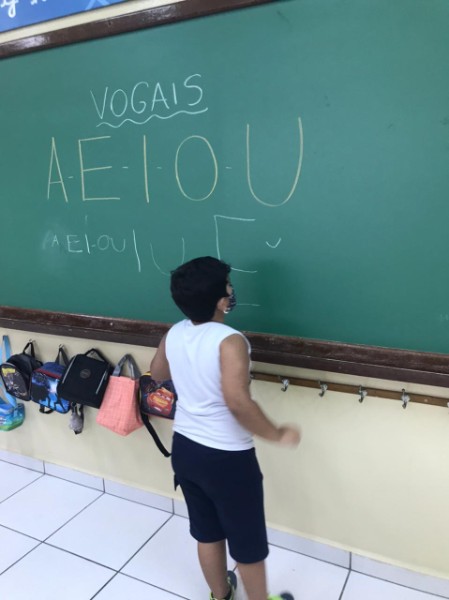 VOGAIS
A-E-I-O-U
A-EI-OU I U E